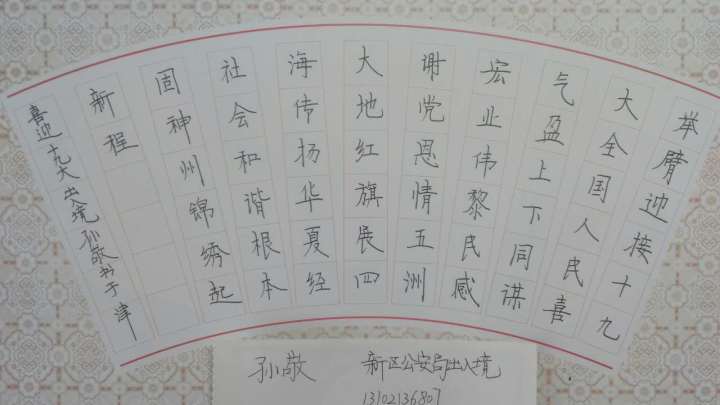 举臂迎接十九
大全国人民喜
气盈上下同谋
宏业伟黎民感
谢党恩情五洲
大地红旗展四
海传扬华夏经
社会和谐根本
固神州锦绣起
新程
喜迎十九大出入境孙敬书于津
孙敬 新区公安局出入境
13102136807